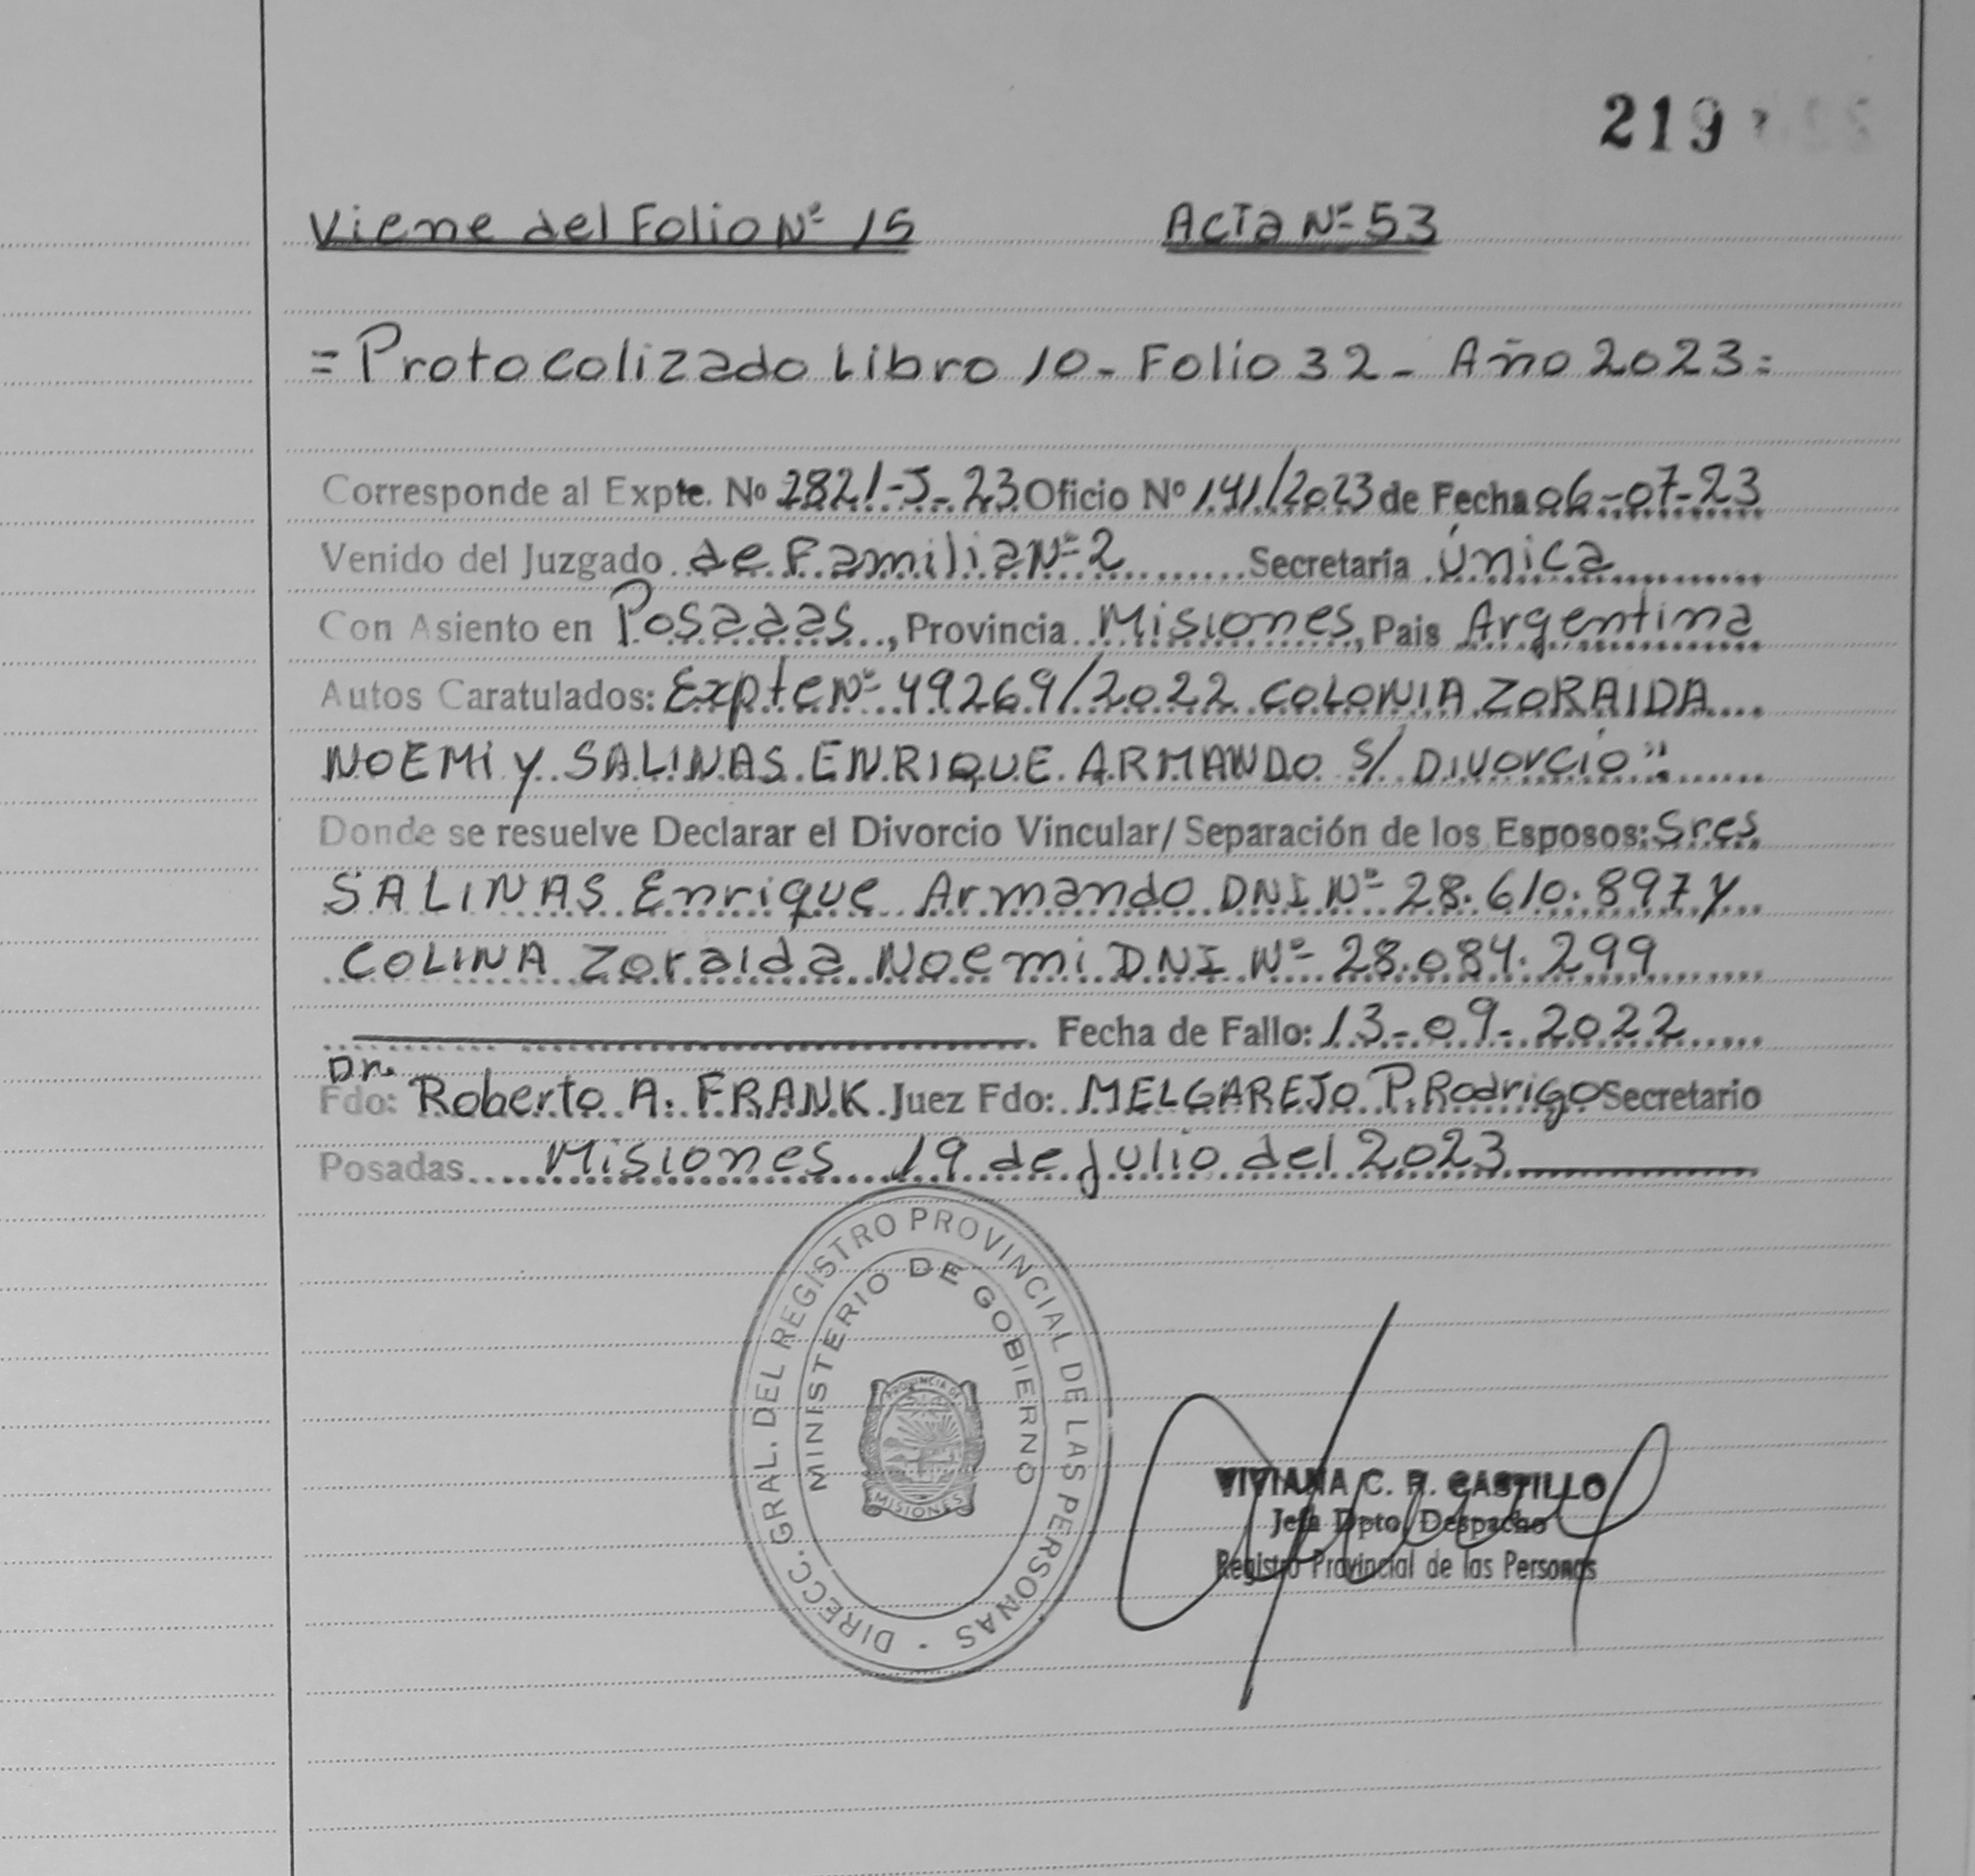 219
Viene del Folio Nº 15 Acta Nº 53
= Protocolizado Libro 10 - Folio 32 - Año 2023 =
Corresponde al Expte. Nº 2821-J-23 Oficio Nº 141/2023 de Fecha 06-07-23
Venido del Juzgado de Familia Nº 2 Secretaría Única
Con Asiento en Posadas, Provincia Misiones, Pais Argentina
Autos Caratulados: Expte Nº 49269/2022 COLONIA ZORAIDA
NOEMI y SALINAS ENRIQUE ARMANDO S/ Divorcio"
Donde se resuelve Declarar el Divorcio Vincular/ Separación de los Esposos: Sres
SALINAS Enrique Armando DNI Nº 28.610.897 y
COLINA Zoraida Noemi DNI Nº 28.084.299
Fecha de Fallo: 13-09-2022
Dr.
Fdo: Roberto A. FRANK Juez Fdo: MELGAREJO P. Rodrigo Secretario
Posadas Misiones 19 de julio del 2023
DIRECC. GRAL. DEL REGISTRO PROVINCIAL DE LAS PERSONAS
MINISTERIO DE GOBIERNO
PROVINCIA DE
MISIONES
VIVIANA C. R. CASTILLO
Jefa Dpto. Despacho
Registro Provincial de las Personas